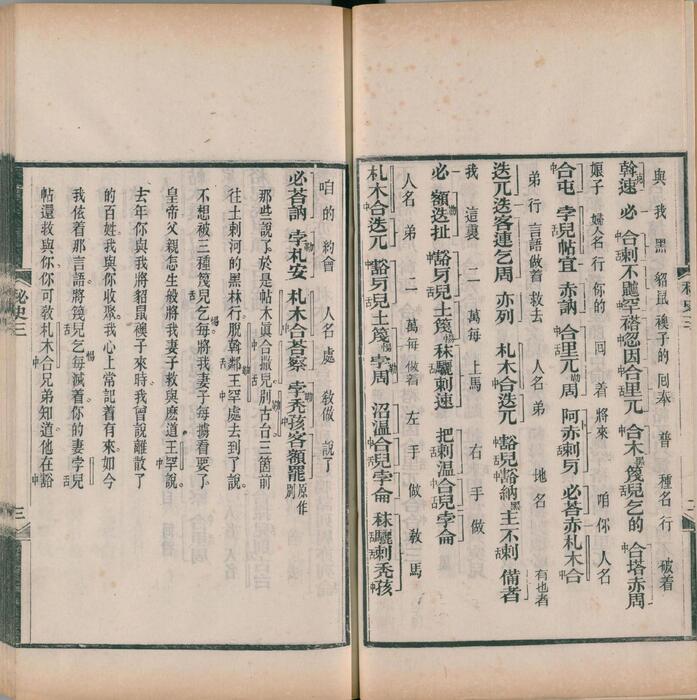 與 我 黑 貂鼠 襖子的 囘奉 普 種名行 破着
斡速 必 合剌不麤罕荅忽因合里兀 合木黑篾兒乞的 合塔赤周
娘子 婦人名行你的 囘着將來 咱你人名
合屯 孛兒帖宜 赤訥 合里兀勒周 阿赤剌牙 必荅赤札木合
弟行 言語做着 救去 人名弟 地名 有也者
迭兀迭客連乞周 亦列 札木合迭兀 豁兒豁納黑主不剌 備者
我 這裏 二 萬每 上馬 右手做
必 額勒迭扯 豁牙兒土篾惕秣驪剌速 把剌溫合兒孛侖
人名弟 二 萬每做着 左手做 教上馬
札木合迭兀 豁牙兒土篾惕孛勒周 沼溫合兒孛侖 秣驪剌禿孩
咱的 約會 人名處 教做 說了
必荅訥 孛勒札安 札木合荅察 孛勒禿孩客額罷 原作別
那些說了於是帖木眞合撒兒別勒古台三箇前
往土剌河的黑林行脫斡鄰勒王罕處去到了說
不想被三種篾兒乞惕每將我妻子每擄看要了
皇帝父親怎生般將我妻子救與麽道王罕說
去年你與我將貂鼠襖子來時我曾說離散了
的百姓我與你收聚我心上常記着有來如今
我依着那言語將篾兒乞惕每滅着你的妻孛兒
帖還救與你你可敎札木合兄弟知道他在豁
秘史三
三